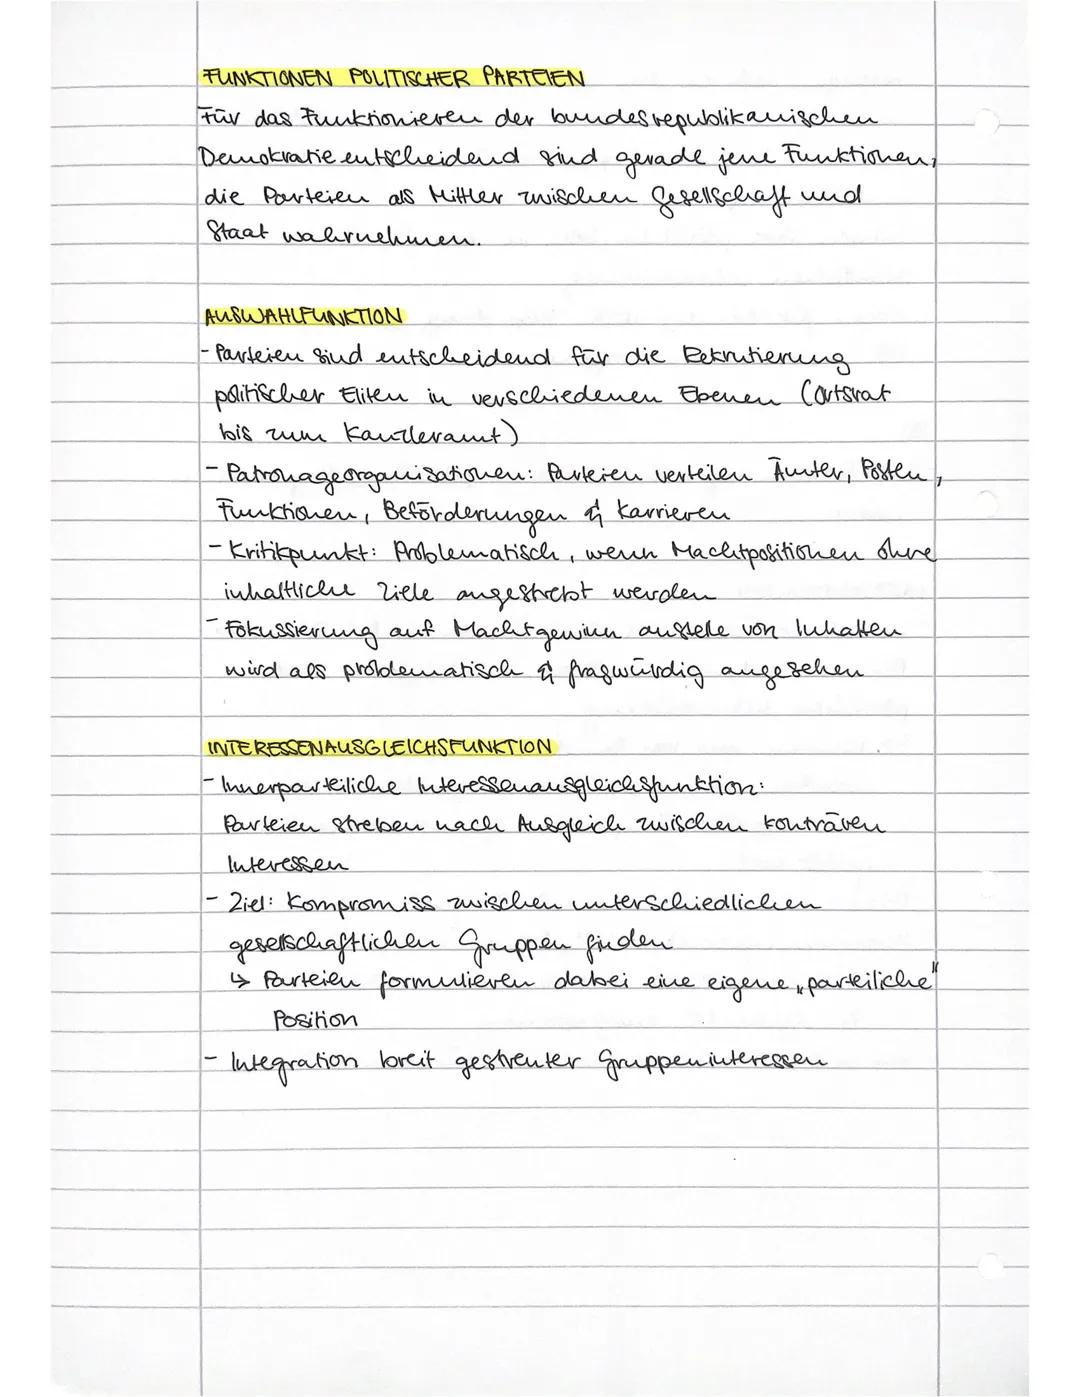 FUNKTIONEN POLITISCHER PARTEIEN
Für das Funktionieren der bundesrepublikanischen
Demokratie entscheidend sind gerade jene Funktionen,
die Parteien als Mittler zwischen Gesellschaft und
Staat wahrnehmen.
AUSWAHLFUNKTION
- Parteien sind entscheidend für die Rekrutierung
politischer Eliten in verschiedenen Ebenen (Ortsrat
bis zum Kanzleramt)
- Patronageorganisationen: Parteien verteilen Ämter, Posten,
Funktionen, Beförderungen & Karrieren
- Kritikpunkt: Problematisch, wenn Machtpositionen ohne
inhaltliche Ziele angestrebt werden
- Fokussierung auf Machtgewinn anstelle von Inhalten
wird als problematisch & fragwürdig angesehen
INTERESSENAUSGLEICHSFUNKTION
- Innerparteiliche Interessenausgleichsfunktion:
Parteien streben nach Ausgleich zwischen konträren
Interessen
- Ziel: Kompromiss zwischen unterschiedlichen
gesellschaftlichen Gruppen finden
↳ Parteien formulieren dabei eine eigene „parteiliche"
Position
- Integration breit gestreuter Gruppeninteressen